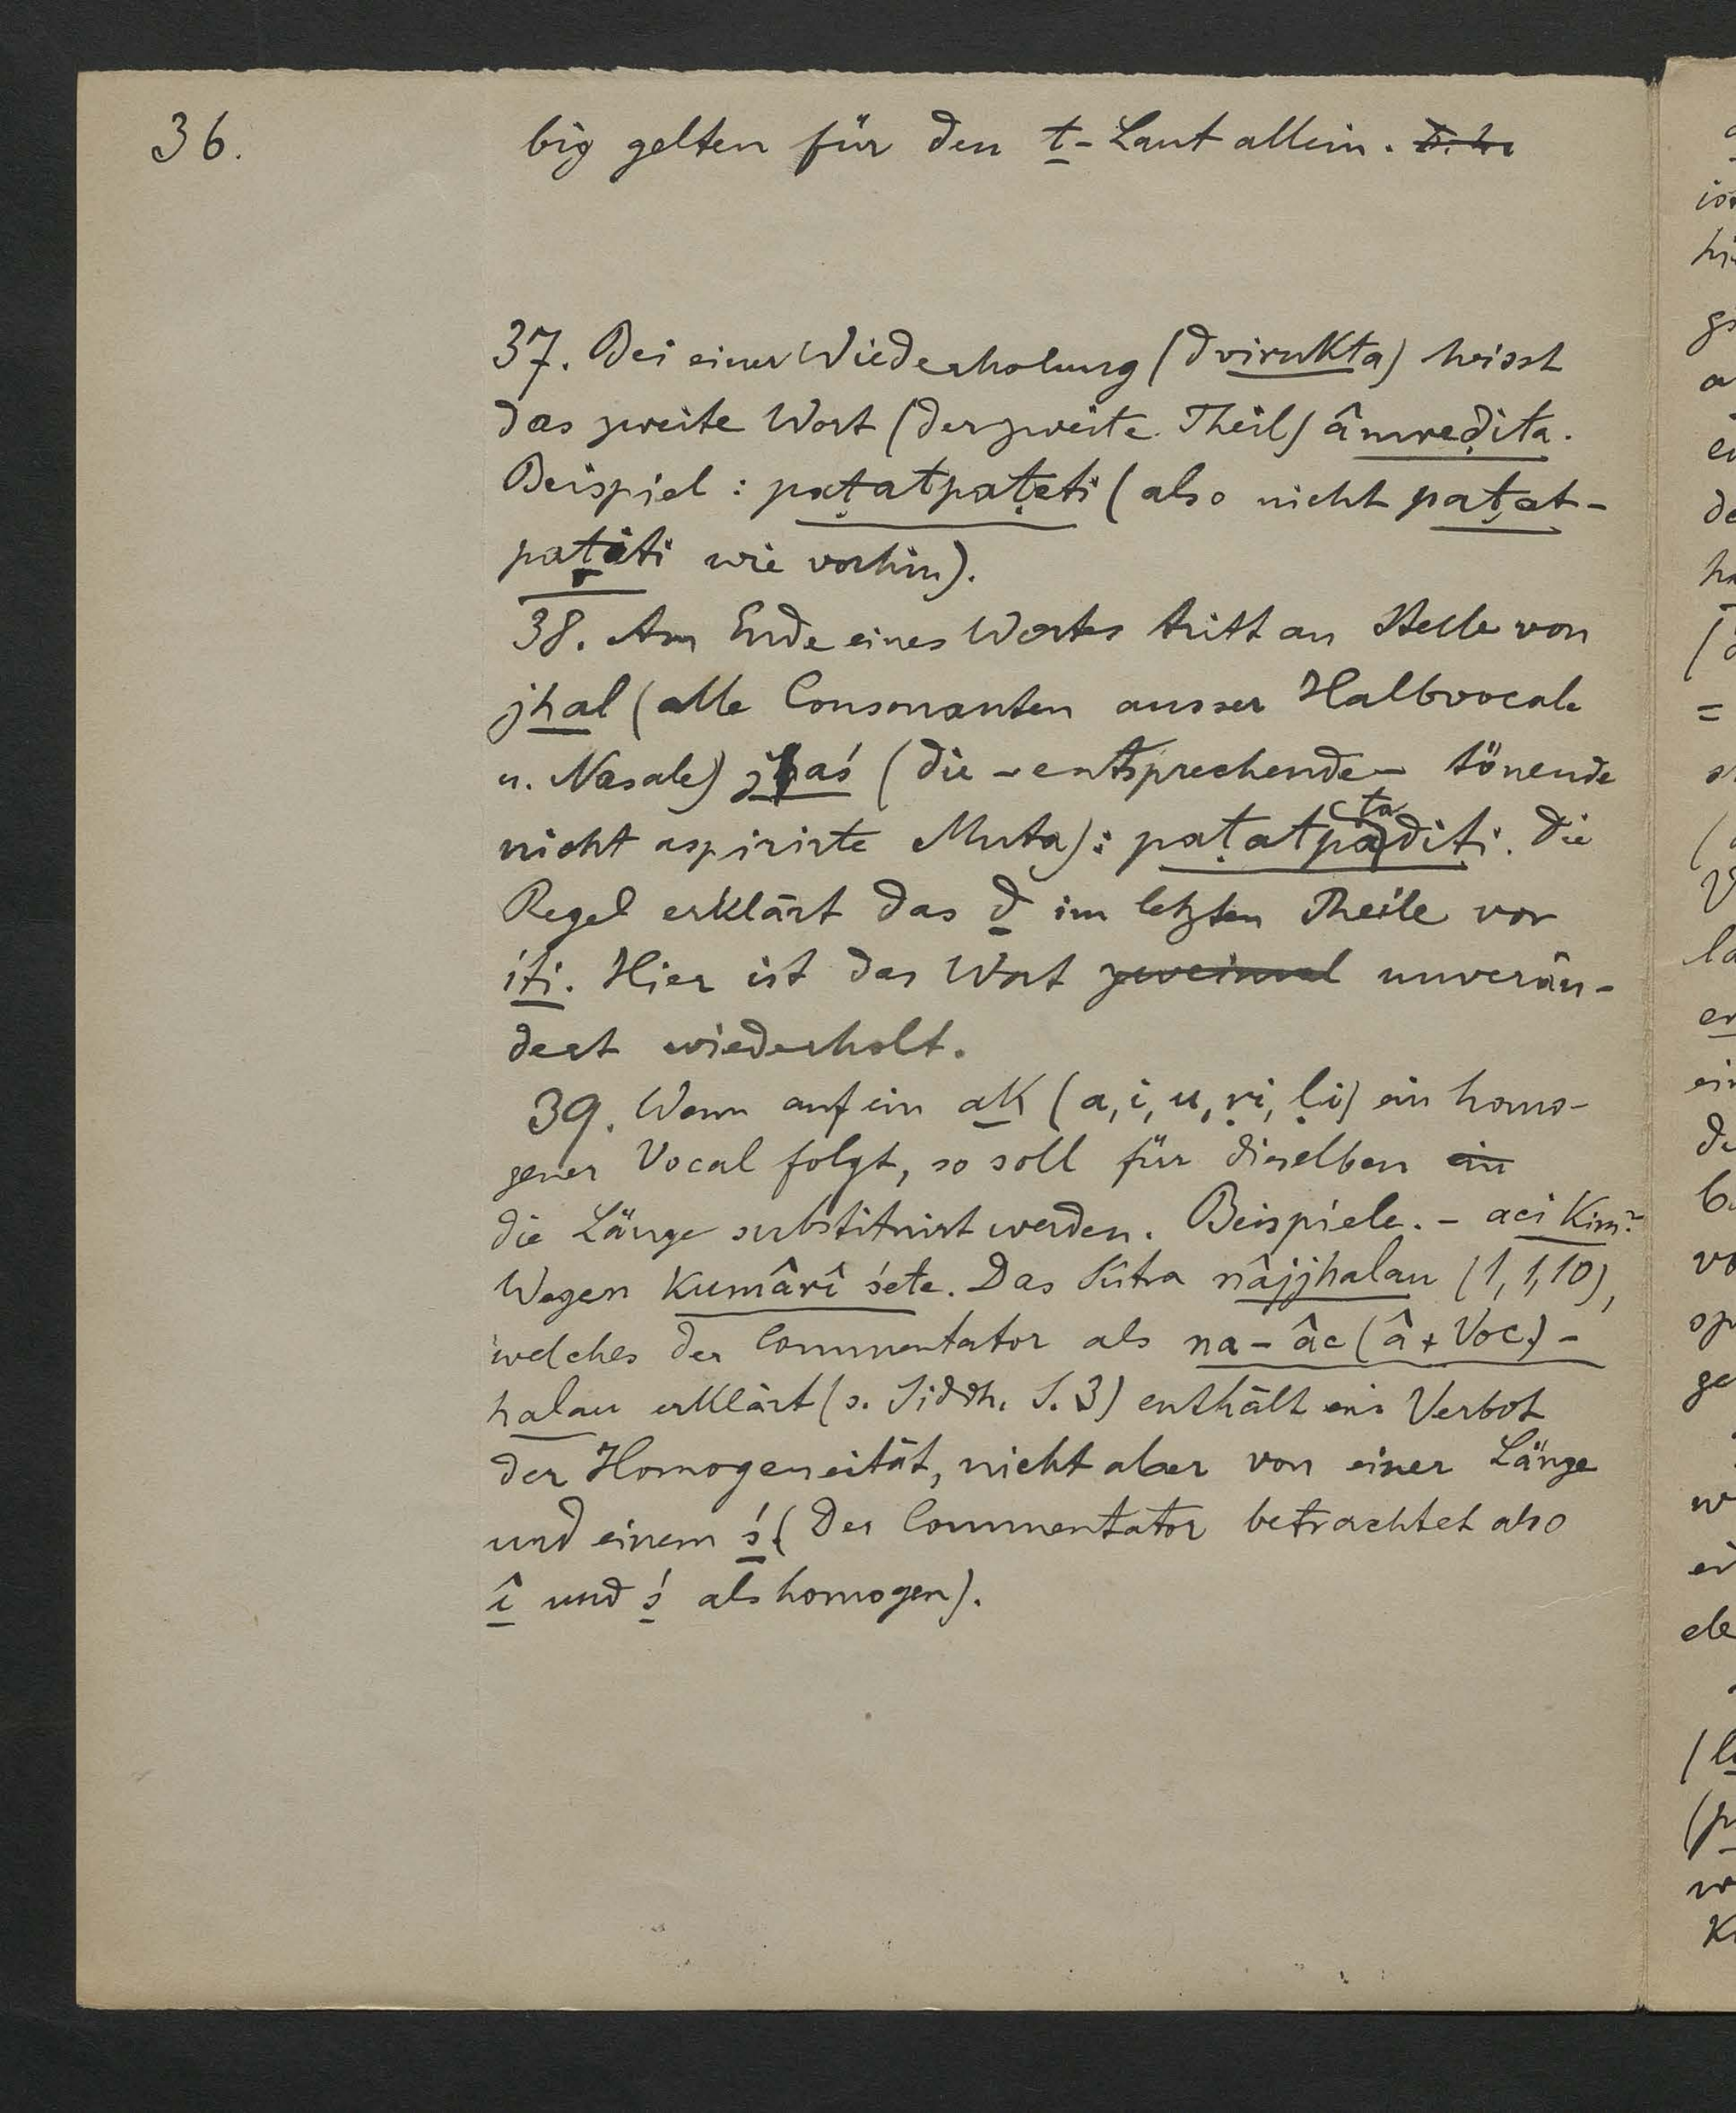 36.
big gelten für den t-Laut allein. D. h.
37. Bei einer Wiederholung (dvirukta) heisst
das zweite Wort (der zweite Theil) âmreḍita.
Beispiel: paṭatpaṭeti (also nicht paṭat-
paṭiti wie vorhin).
38. Am Ende eines Wortes tritt an Stelle von
jhal (alle Consonanten ausser Halbvocale
u. Nasale) jaś (die - entsprechende - tönende
nicht aspirirte Muta): paṭatpaṭaditi. Die
Regel erklärt das d im letzten Theile vor
iti. Hier ist das Wort zweimal unverän-
dert wiederholt.
39. Wenn auf ein ak (a, i, u, ṛi, ḷi) ein homo-
gener Vocal folgt, so soll für dieselben ein
die Länge substituirt werden. Beispiele. - aci kim?
Wegen kumârî śete. Das Sûtra nâjjhalau (1, 1, 10),
welches der Commentator als na-âc (â + Voc.)-
halau erklärt (s. Siddh. S. 3) enthält ein Verbot
der Homogeneität, nicht aber von einer Länge
und einem ś. (Der Commentator betrachtet also
î und ś als homogen).
ist